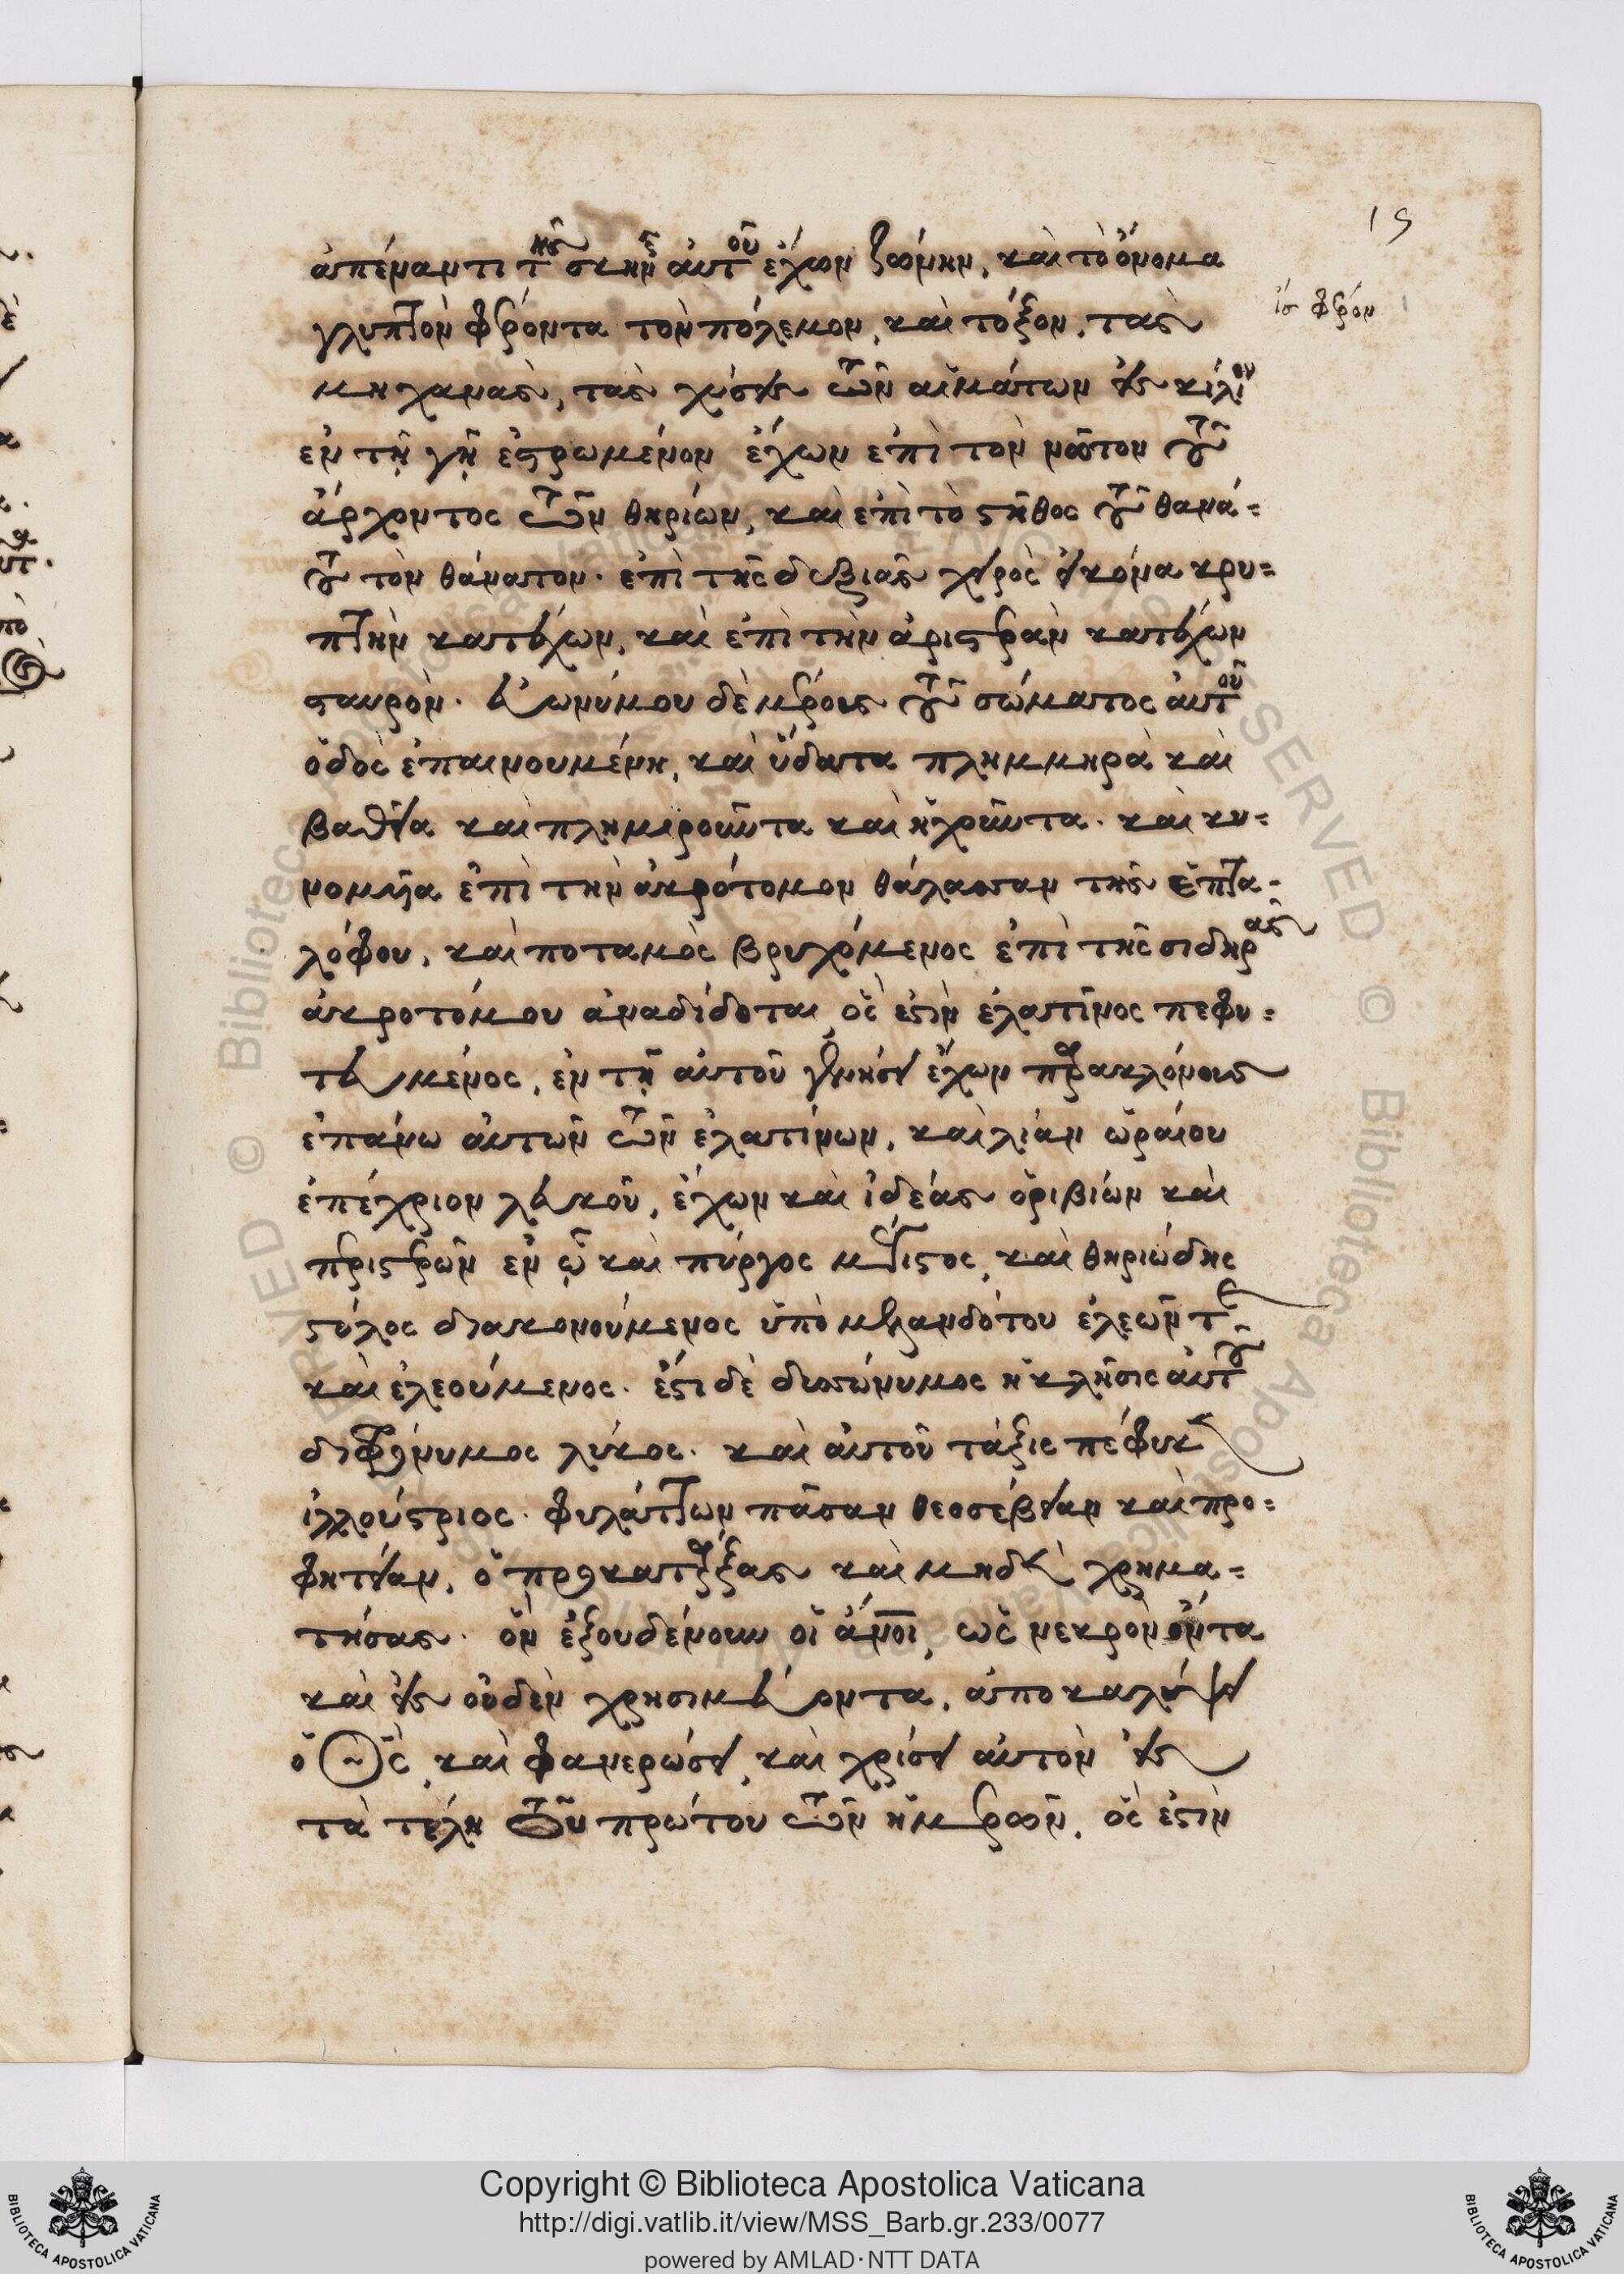 15
ἀπέναντι τῆς σκηνῆς αὐτοῦ ἔχων ζώνην, καὶ τὸ ὄνομα
ἴσ φέρον
γλυπτὸν φέροντα τὸν πόλεμον, καὶ τόξον, τας
μηχανας, τας χύσεις τῶν αἱμάτων εἰς
ἐν τῇ γῇ ἐστρωμένον ἔχων ἐπὶ τὸν νῶτον τοῦ
ἄρχοντος τῶν θηρίων, καὶ ἐπὶ τὸ στῆθος τοῦ θανά=
του τὸν θάνατον· ἐπὶ τῆς δεξιᾶς χειρὸς εἰκόνα κρυ=
πτὴν κατέχων, καὶ ἐπὶ τὴν ἀριστερὰν κατέχων
σταυρὸν· εὐωνύμου δὲ μέρους τοῦ σώματος αὐτοῦ
ὁδὸς ἐπαινουμένη, καὶ ὕδατα πλημμηρὰ καὶ
βαθεῖα καὶ πλημιροῦντα καὶ ἠχοῦντα· καὶ κυ=
νομυῖα ἐπὶ τὴν ἀκρότομον θάλασσαν τῆς ἑπτα-
λόφου, καὶ ποταμὸς βρυχόμενος ἐπὶ τῆς σιδηρᾶς
ἀκροτόμου ἀναδίδοται ὅς ἐστὶν ἐλατῖνος πεφυ=
τευμένος, ἐν τῇ αὐτοῦ γεννήσει ἔχων
ἐπάνω αὐτῶν τῶν ἐλατίνων, καὶ λίαν ὡραίου
ἐπέχριον λευκοῦ, ἔχων καὶ ἰδέας ὀριβίων καὶ
περιστερῶν ἐν ᾧ καὶ πύργος μέγιστος, καὶ θηριώδης
στύλος διακονούμενος ὑπὸ ἐλεῶν τε
καὶ ἐλεούμενος· ἔστι δὲ δυσώνυμος ἡ κλῆσις αὐτοῦ
λύκος· καὶ αὐτοῦ τάξις πέφυκεν
ἰλλούστριος· φυλάττων πᾶσαν θεοσέβειαν καὶ προ=
φητείαν, ὁ προκατάρξας καὶ μηδὲν χρημα=
τήσας· ὃν ἐξουδένουν οἱ ἄνοι, ὡς νεκρὸν ὄντα
καὶ εἰς οὐδὲν χρησιμεύοντα, ἀποκαλύψει
ὁ Θς, καὶ φανερώσει, καὶ χρίσει αὐτὸν εἰς
τὰ τέλη τοῦ πρώτου τῶν ἡμερῶν, ὅς ἐστὶν
Copyright © Biblioteca Apostolica Vaticana
http://digi.vatlib.it/view/MSS_Barb.gr.233/0077
powered by AMLAD·NTT DATA